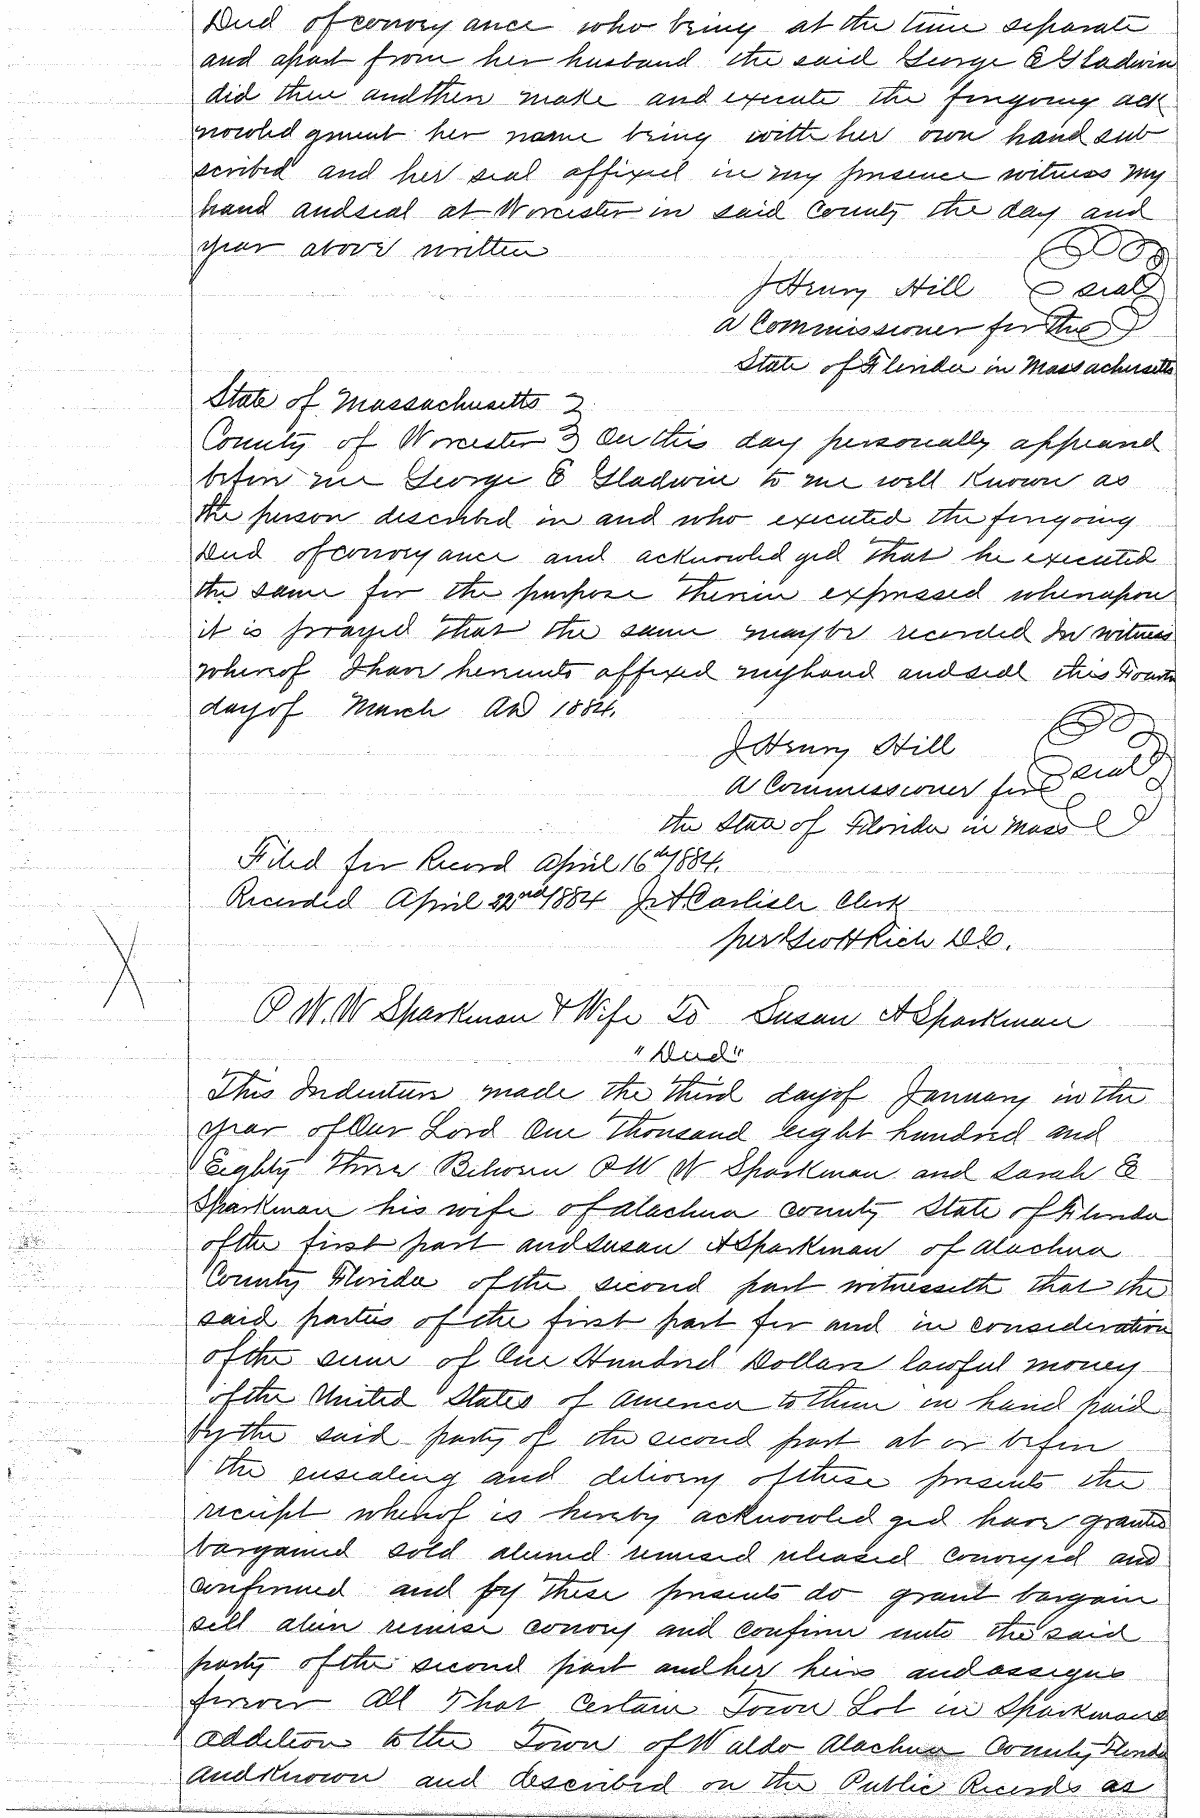 Deed of conveyance who being at the time separate
and apart from her husband the said George E Gladwin
did then and then make and execute the foregoing ack
nowledgment her name being with her own hand sub
scribed and her seal affixed in my presence witness my
hand and seal at Worcester in said County the day and
year above written
J Henry Hill seal
A Commissioner for the
State of Florida in Massachusetts
State of Massachusetts }
County of Worcester } On this day personally appeared
before me George E Gladwin to me well known as
the person described in and who executed the foregoing
Deed of conveyance and acknowledged that he executed
the same for the purpose therein expressed whereupon
it is prayed that the same maybe recorded In witness
whereof I have hereunto affixed my hand and seal this Fourth
day of March AD 1884.
J Henry Hill
A Commissioner for seal
the State of Florida in Mass
Filed for Record April 16th 1884.
Recorded April 22nd 1884 J A Carlisle Clerk
per Geo H Rich D C.
P W. W Sparkman & Wife To Susan A Sparkman
"Deed"
This Indenture made the third day of January in the
year of Our Lord One Thousand eight hundred and
Eighty three Between P W W Sparkman and Sarah E
Sparkman his wife of Alachua County State of Florida
of the first part and Susan A Sparkman of Alachua
County Florida of the second part witnesseth that the
said parties of the first part for and in consideration
of the sum of One Hundred Dollars lawful money
of the United States of America to them in hand paid
by the said party of the second part at or before
the ensealing and delivery of these presents the
receipt whereof is hereby acknowledged have granted
bargained sold aliened remised released conveyed and
confirmed and by these presents do grant bargain
sell alien remise convey and confirm unto the said
party of the second part and her heirs and assigns
forever All That certain Town Lot in Sparkmans
addition to the Town of Waldo Alachua County Florida
and Known and described on the Public Records as